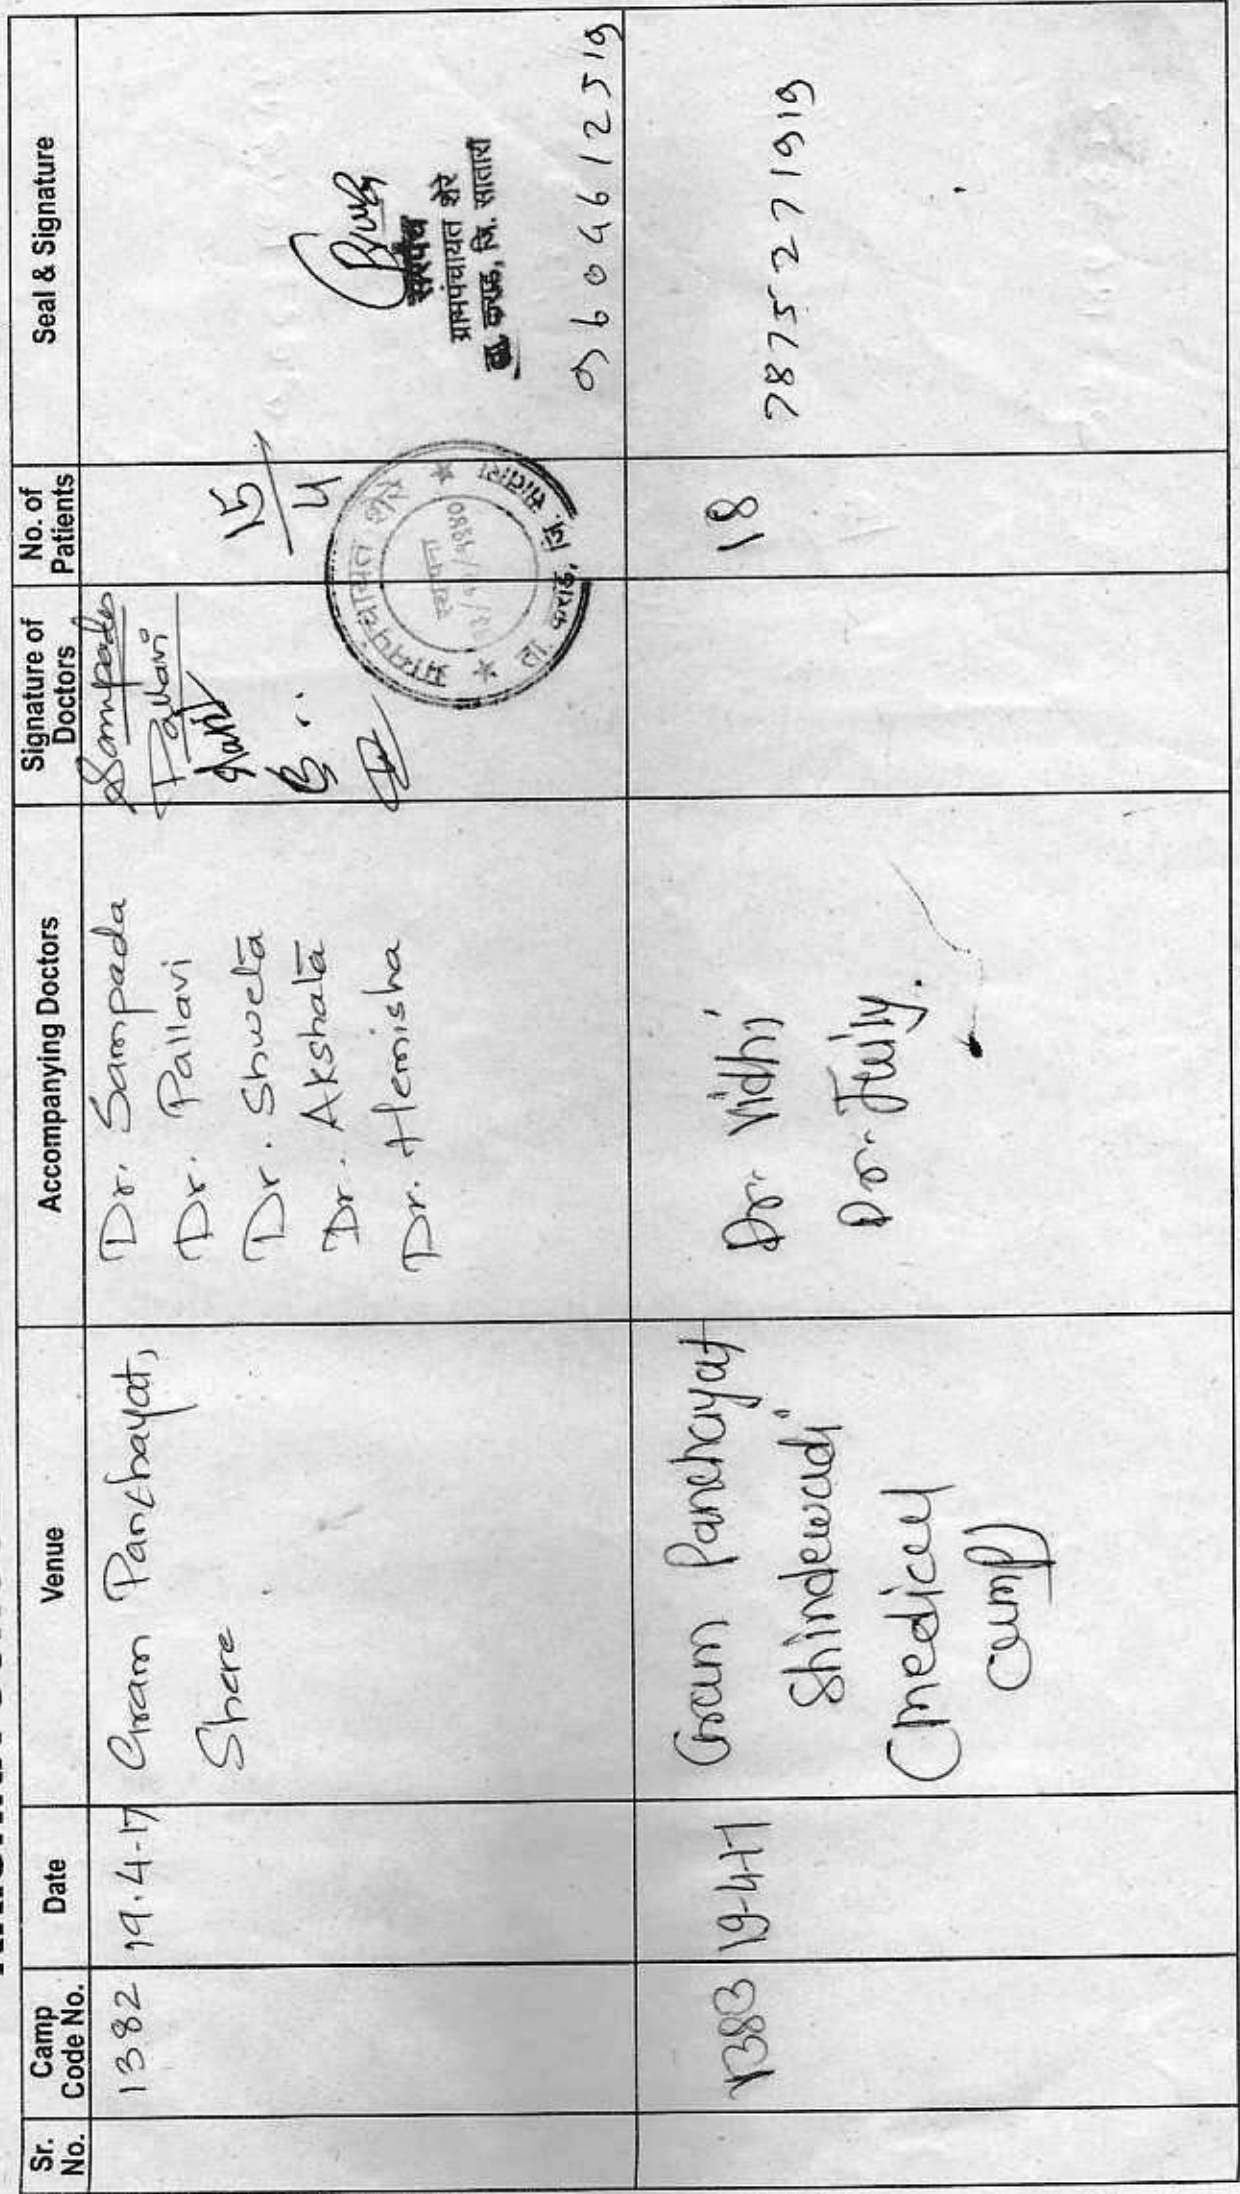 Sr. No.
Camp Code No.
Date
Venue
Accompanying Doctors
Signature of Doctors
No. of Patients
Seal & Signature
1382
19.4-17
Gram Panchayat,
Shere
Dr. Sampada
Dr. Pallavi
Dr. Shweta
Dr. Akshata
Dr. Hemisha
Sampada
Pallavi
15/4
सरपंच
ग्रामपंचायत शेरे
ता. कराड, जि. सातारा
ग्रामपंचायत शेरे
ता. कराड, जि. सातारा
स्थापना
1383
19-4-17
Gram Panchayat
Shindewadi
(medical
camp)
Dr. Vidhi
Dr. Juily.
18
7875271919